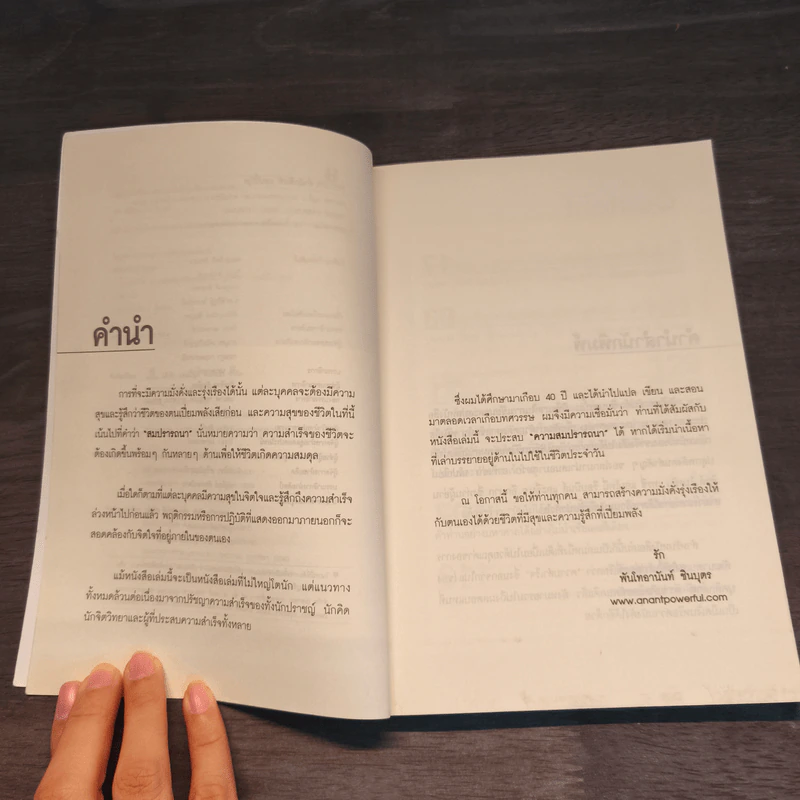 คำนำ
การที่จะมีความมั่งคั่งและรุ่งเรืองได้นั้น แต่ละบุคคลจะต้องมีความ
สุขและรู้สึกว่าชีวิตของตนเปี่ยมพลังเสียก่อน และความสุขของชีวิตในที่นี้
เน้นไปที่คำว่า "สมปรารถนา" นั่นหมายความว่า ความสำเร็จของชีวิตจะ
ต้องเกิดขึ้นพร้อมๆ กันหลายๆ ด้านเพื่อให้ชีวิตเกิดความสมดุล
เมื่อใดก็ตามที่แต่ละบุคคลมีความสุขในจิตใจและรู้สึกถึงความสำเร็จ
ล่วงหน้าไปก่อนแล้ว พฤติกรรมหรือการปฏิบัติที่แสดงออกมาภายนอกก็จะ
สอดคล้องกับจิตใจที่อยู่ภายในของตนเอง
แม้หนังสือเล่มนี้จะเป็นหนังสือเล่มที่ไม่ใหญ่โตนัก แต่แนวทาง
ทั้งหมดล้วนต่อเนื่องมาจากปรัชญาความสำเร็จของทั้งนักปราชญ์ นักคิด
นักจิตวิทยาและผู้ที่ประสบความสำเร็จทั้งหลาย
ซึ่งผมได้ศึกษามาเกือบ 40 ปี และได้นำไปแปล เขียน และสอน
มาตลอดเวลาเกือบทศวรรษ ผมจึงมีความเชื่อมั่นว่า ท่านที่ได้สัมผัสกับ
หนังสือเล่มนี้ จะประสบ "ความสมปรารถนา" ได้ หากได้เริ่มนำเนื้อหา
ที่เล่าบรรยายอยู่ด้านในไปใช้ในชีวิตประจำวัน
ณ โอกาสนี้ ขอให้ท่านทุกคน สามารถสร้างความมั่งคั่งรุ่งเรืองให้
กับตนเองได้ด้วยชีวิตที่มีสุขและความรู้สึกที่เปี่ยมพลัง
รัก
พันโทอานันท์ ชินบุตร
www.anantpowerful.com